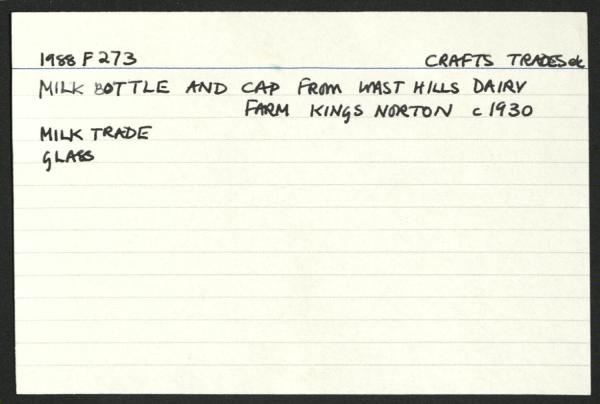 1988 F 273 CRAFTS TRADES etc
MILK BOTTLE AND CAP FROM WAST HILLS DAIRY
FARM KINGS NORTON c 1930
MILK TRADE
GLASS